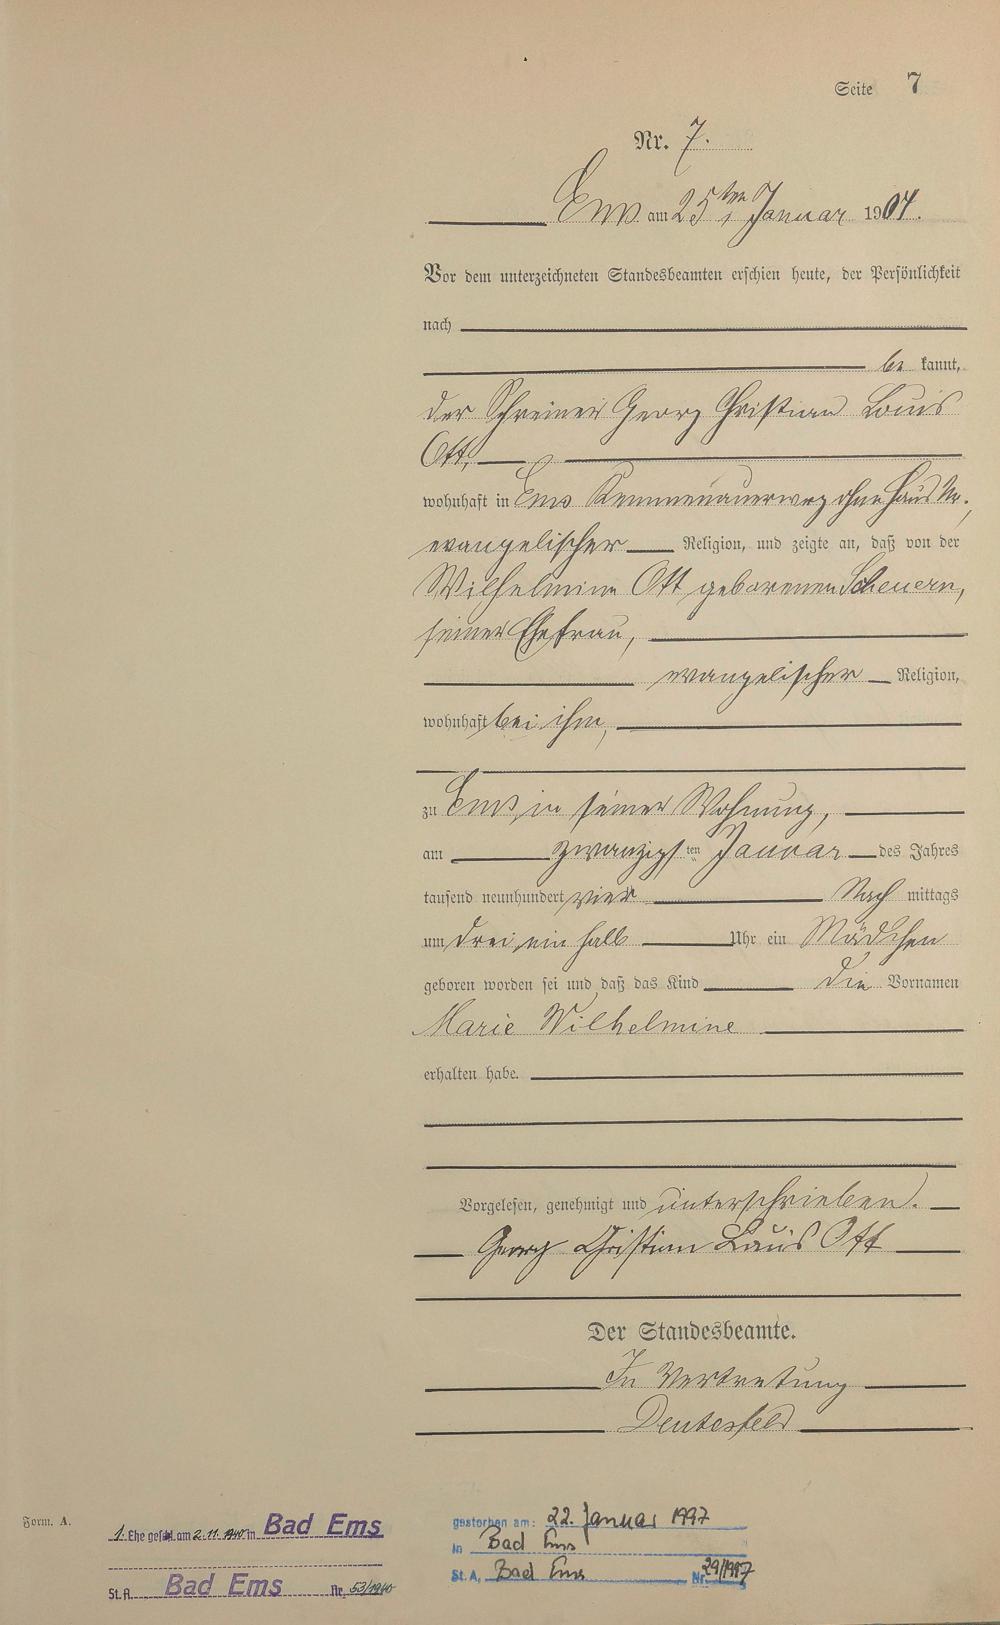 Seite 7
Nr. 7.
Ems am 25ten Januar 1904.
Vor dem unterzeichneten Standesbeamten erschien heute, der Persönlichkeit
nach
be kannt,
der Schreiner Georg Christian Louis
Ott,
wohnhaft in Ems Kemmenauerweg ohne Haus Nr.,
evangelischer Religion, und zeigte an, daß von der
Wilhelmine Ott geborenen Scheuern,
seiner Ehefrau,
evangelischer Religion,
wohnhaft bei ihm,
zu Ems in seiner Wohnung,
am zwanzigsten Januar des Jahres
tausend neunhundert vier Nach mittags
um drei ein halb Uhr ein Mädchen
geboren worden sei und daß das Kind die Vornamen
Marie Wilhelmine
erhalten habe.
Vorgelesen, genehmigt und unterschrieben.
Georg Christian Louis Ott
Der Standesbeamte.
In Vertretung
Form. A.
1. Ehe geschl. am 2.11.1940 in Bad Ems
St. A. Bad Ems Nr. 53/1940
gestorben am: 22. Januar 1997
in Bad Ems
St. A. Bad Ems Nr. 29/1997